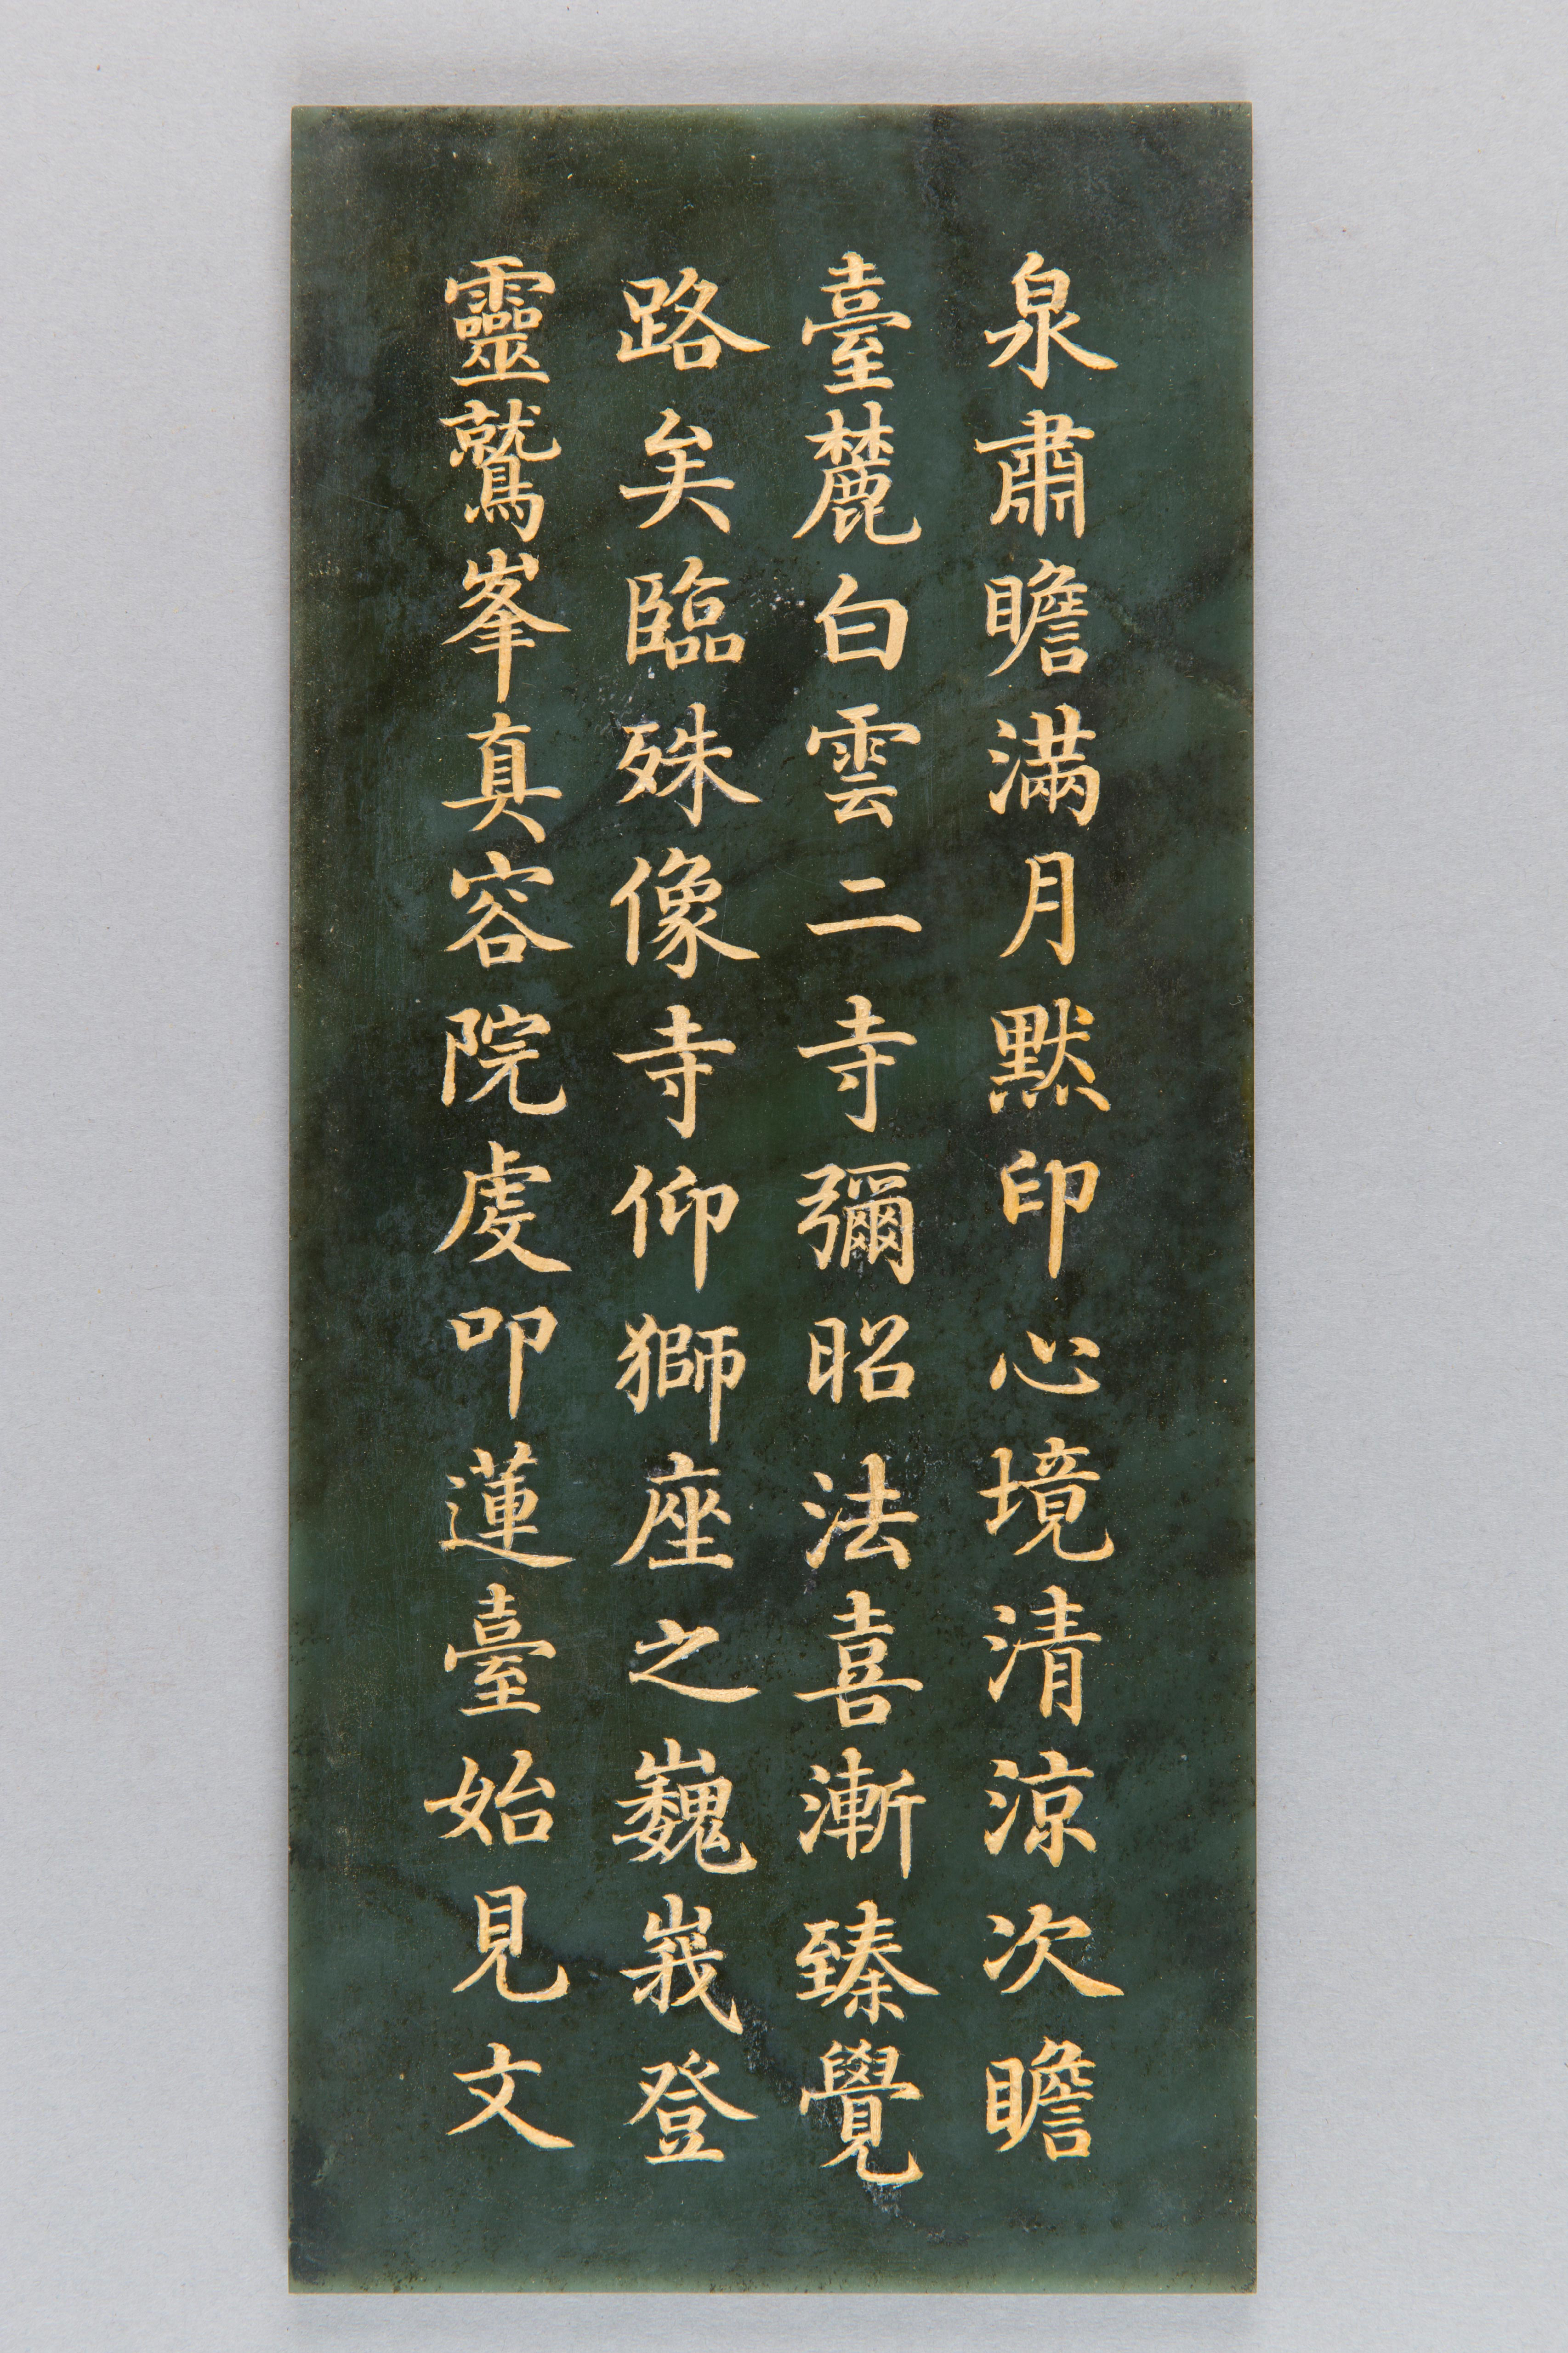 泉肅瞻滿月默印心境清涼次瞻
臺麓白雲二寺彌昭法喜漸臻覺
路矣臨殊像寺仰獅座之巍峩登
靈鷲峯真容院虔叩蓮臺始見文